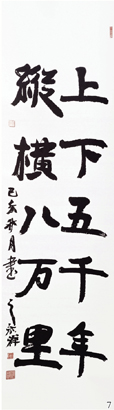 上下五千年
縱橫八万里
己亥
月書
7